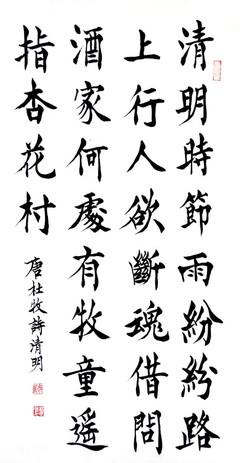 清明時節雨紛紛路
上行人欲斷魂借問
酒家何處有牧童遥
指杏花村
唐杜牧詩清明